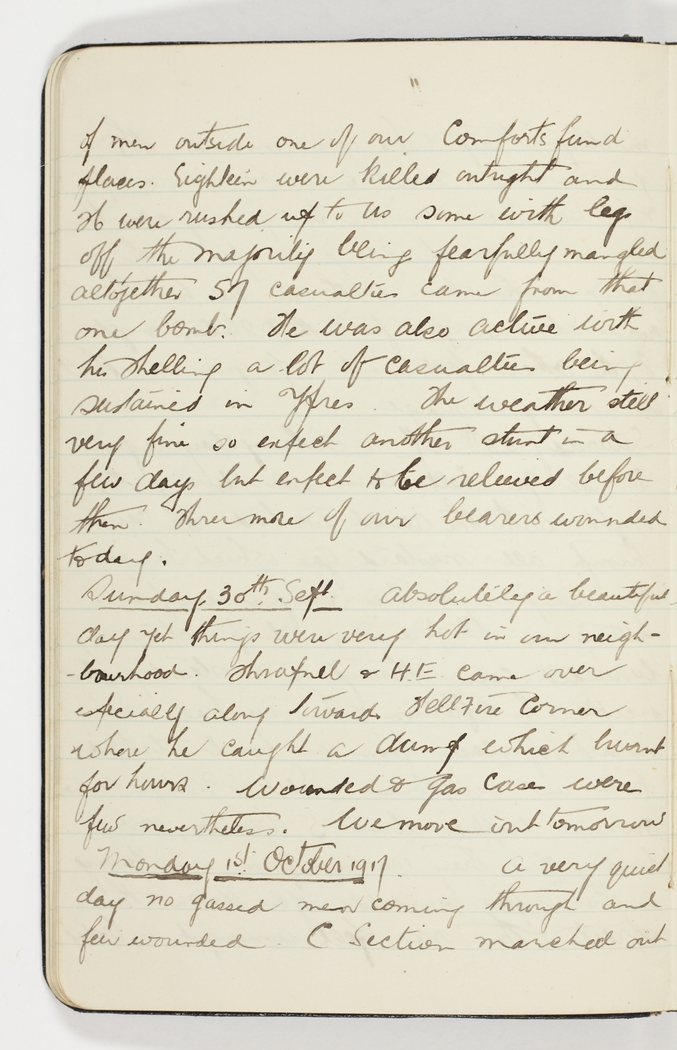 of men outside one of our Comforts fund
places. Eighteen were killed outright and
were rushed up to us some with legs
off the majority being fearfully mangled
altogether 57 casualties came from that
one bomb. He was also active with
his shelling a lot of casualties being
sustained in Ypres. The weather still
very fine so expect another stunt in a
few days but expect to be relieved before
then. Three more of our bearers wounded
to day.
Sunday, 30th Sept. Absolutely a beautiful
day yet things were very hot in our neigh-
-bourhood. Shrapnel & H.E. came over
especially along towards Hell Fire Corner
where he caught a dump which burnt
for hours. Wounded & gas cases were
few nevertheless. We move out tomorrow
Monday 1st October 1917. A very quiet
day no gassed men coming through and
few wounded. C Section marched out